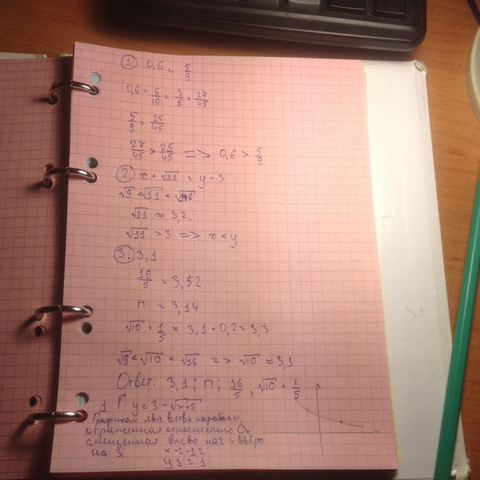 ① 0,6 и 5/9
0,6 = 6/10 = 3/5 = 27/45
5/9 = 25/45
27/45 > 25/45 => 0,6 > 5/9
② x = √11 = y = 3
√9 < √11 < √16
√11 ≈ 3,2
√11 > 3 => x < y
③. 3,1
16/5 = 3,2
П = 3,14
√10 + 1/5 = 3,1 + 0,2 = 3,3
√9 < √10 < √16 => √10 ≈ 3,1
Ответ: 3,1; П; 16/5, √10 + 1/5
1 Г y = 3 - √x+2
ветвь параболы,
отраженная относительно Ox
смещенная влево на 2 и вверх
на 3.